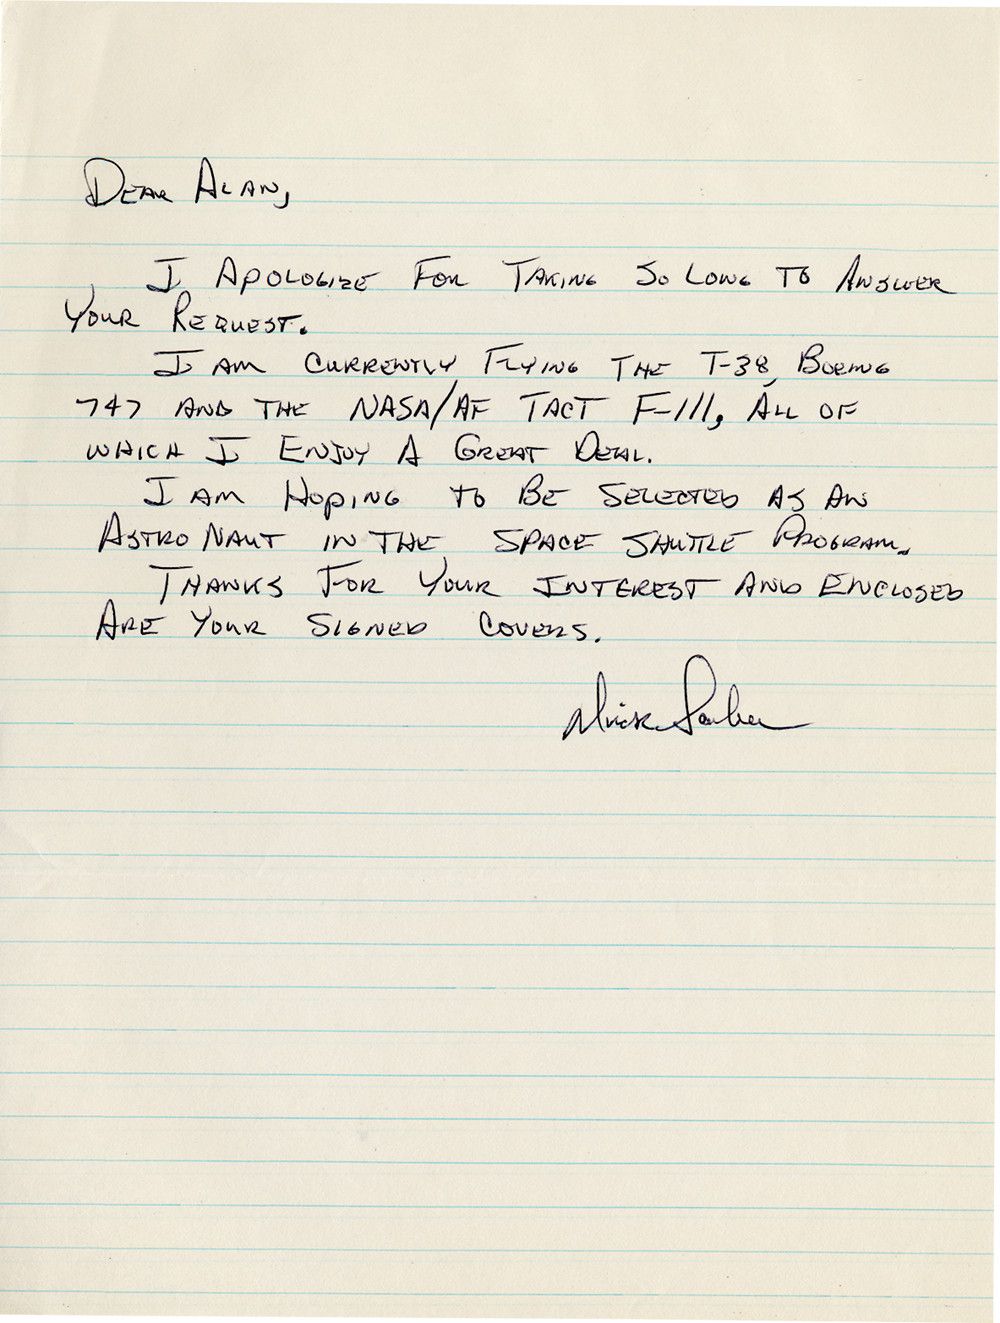 Dear Alan,
I Apologize For Taking So Long To Answer
Your Request.
I am currently Flying the T-38, Boeing
747 and the NASA/AF TACT F-111, All of
which I Enjoy A Great Deal.
I am Hoping to Be Selected as an
Astronaut in the Space Shuttle Program.
Thanks For Your Interest and Enclosed
Are Your Signed Covers.
Dick